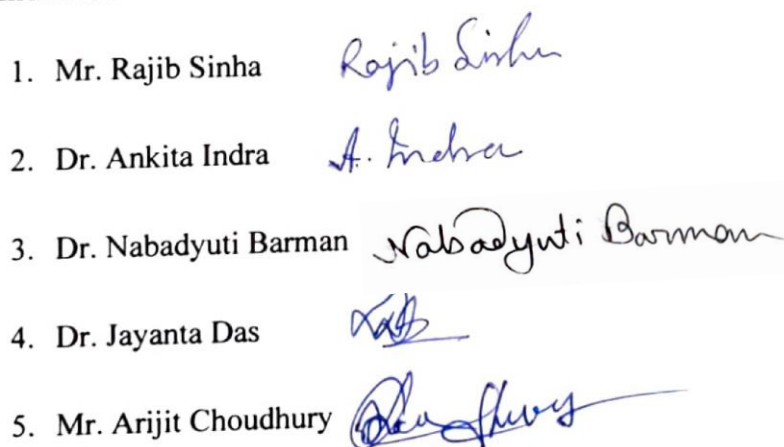 1. Mr. Rajib Sinha Rajib Sinha
2. Dr. Ankita Indra A. Indra
3. Dr. Nabadyuti Barman Nabadyuti Barman
4. Dr. Jayanta Das
5. Mr. Arijit Choudhury